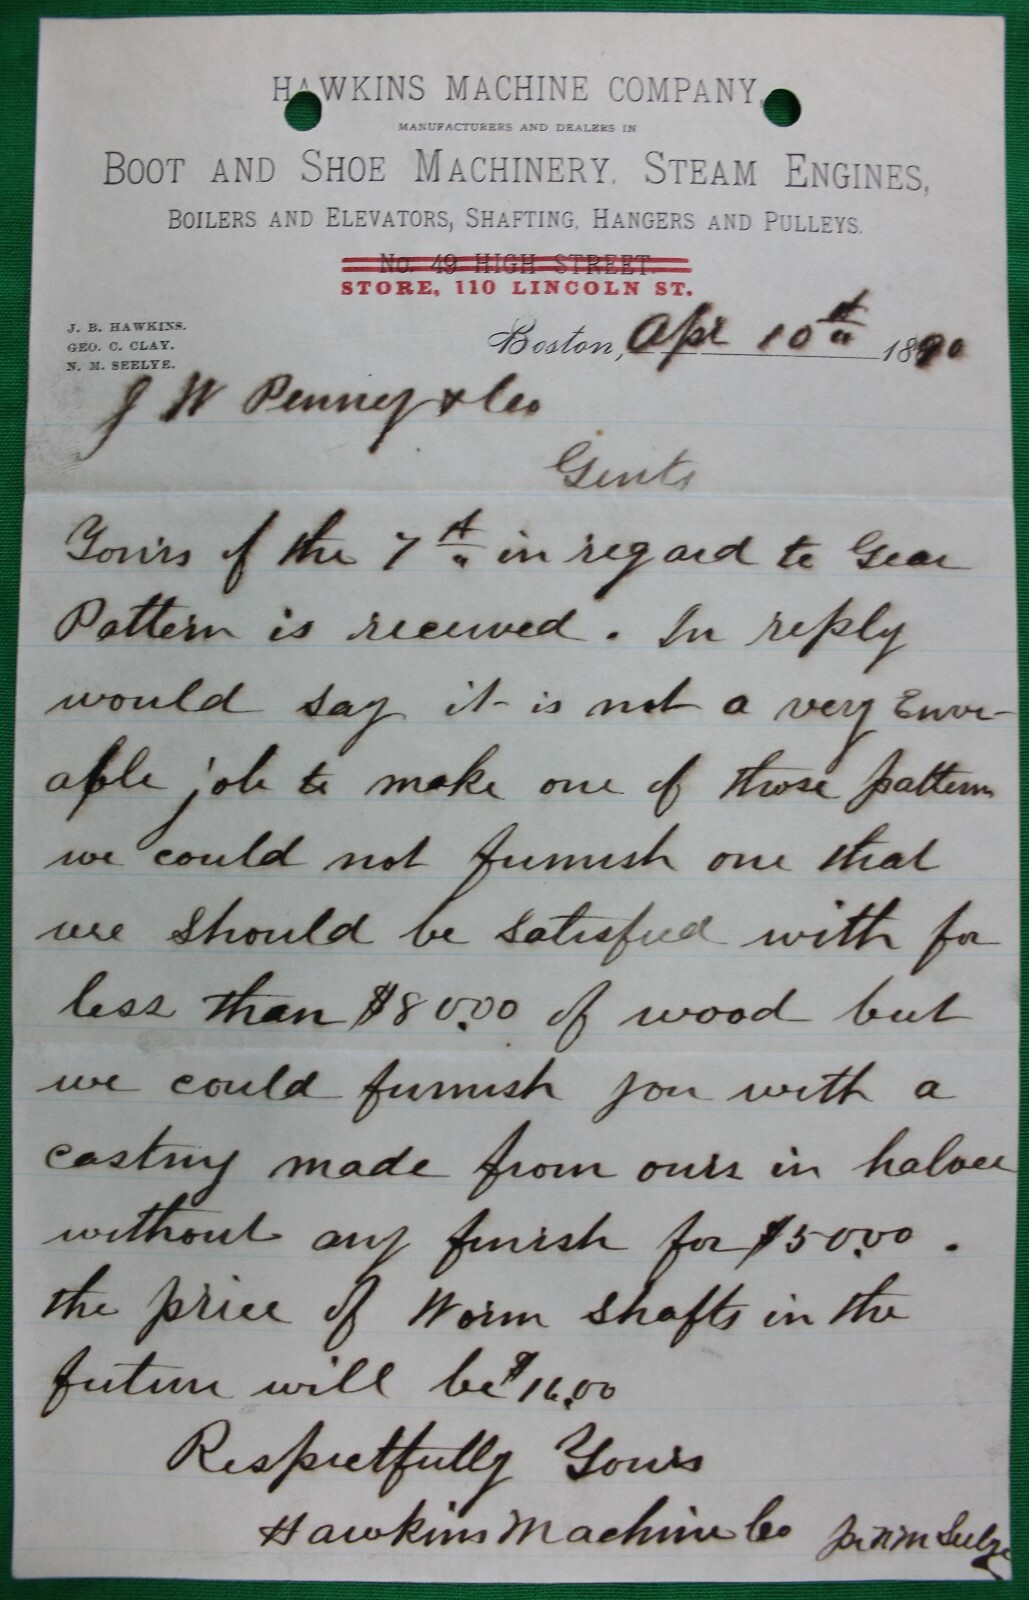 HAWKINS MACHINE COMPANY,
MANUFACTURERS AND DEALERS IN
BOOT AND SHOE MACHINERY, STEAM ENGINES,
BOILERS AND ELEVATORS, SHAFTING, HANGERS AND PULLEYS.
No. 49 HIGH STREET.
STORE, 110 LINCOLN ST.
J. B. HAWKINS.
GEO. C. CLAY.
N. M. SEELYE.
Boston, Apr 10th 1890
J W Penney & Co
Gents
Yours of the 7th in regard to Gear
Pattern is received. In reply
would say it is not a very Envi-
able job to make one of those pattern
we could not furnish one that
we should be satisfied with for
less than $80.00 of wood but
we could furnish you with a
casting made from ours in halves
without any finish for $50.00.
the price of Worm shafts in the
future will be $16.00
Respectfully Yours
Hawkins Machine Co per N M Seelye